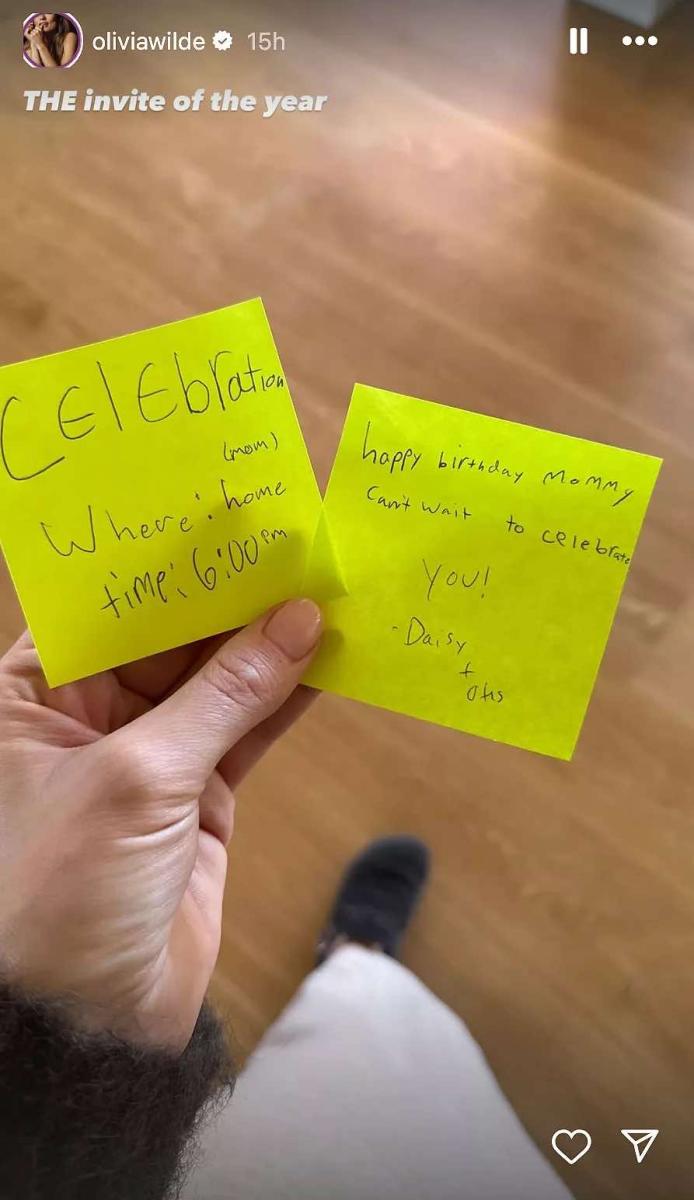 oliviawilde 15h
THE invite of the year
CElEbration
(mom)
Where: home
time: 6:00pm
happy birthday Mommy
Can't wait to celebrate
You!
- Daisy
+
Otis